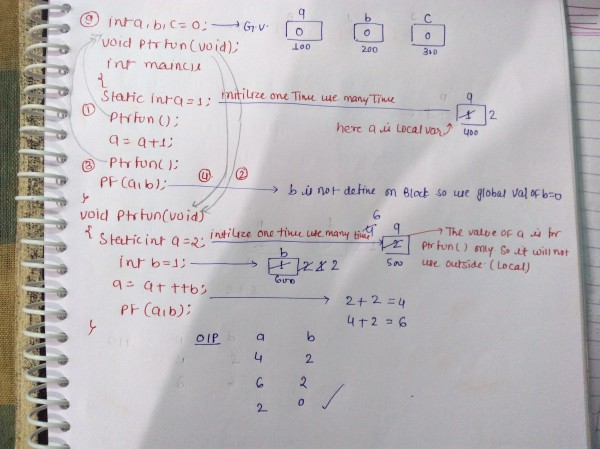 ⑨ int a, b, c = 0; → G.V. a b c
0 0 0
100 200 300
void Ptrfun(void);
int main()
{
Static int a = 1; initilize one Time use many Time a
1 2
400
① Ptrfun(); here a is Local var.
a = a+1;
③ Ptrfun(); ④ ②
PF(a,b); → b is not define on Block so use global val of b=0
}
void Ptrfun(void)
{ Static int a = 2; initilize one time use many time 6 4 a
2
500
→ The value of a is for
Ptrfun() only so it will not
use outside. (Local)
int b = 1; → b
1 2 2 2
600
a = a + ++b; 2+2 = 4
PF(a,b); 4+2 = 6
}
O/P a b
4 2
6 2
2 0 ✓